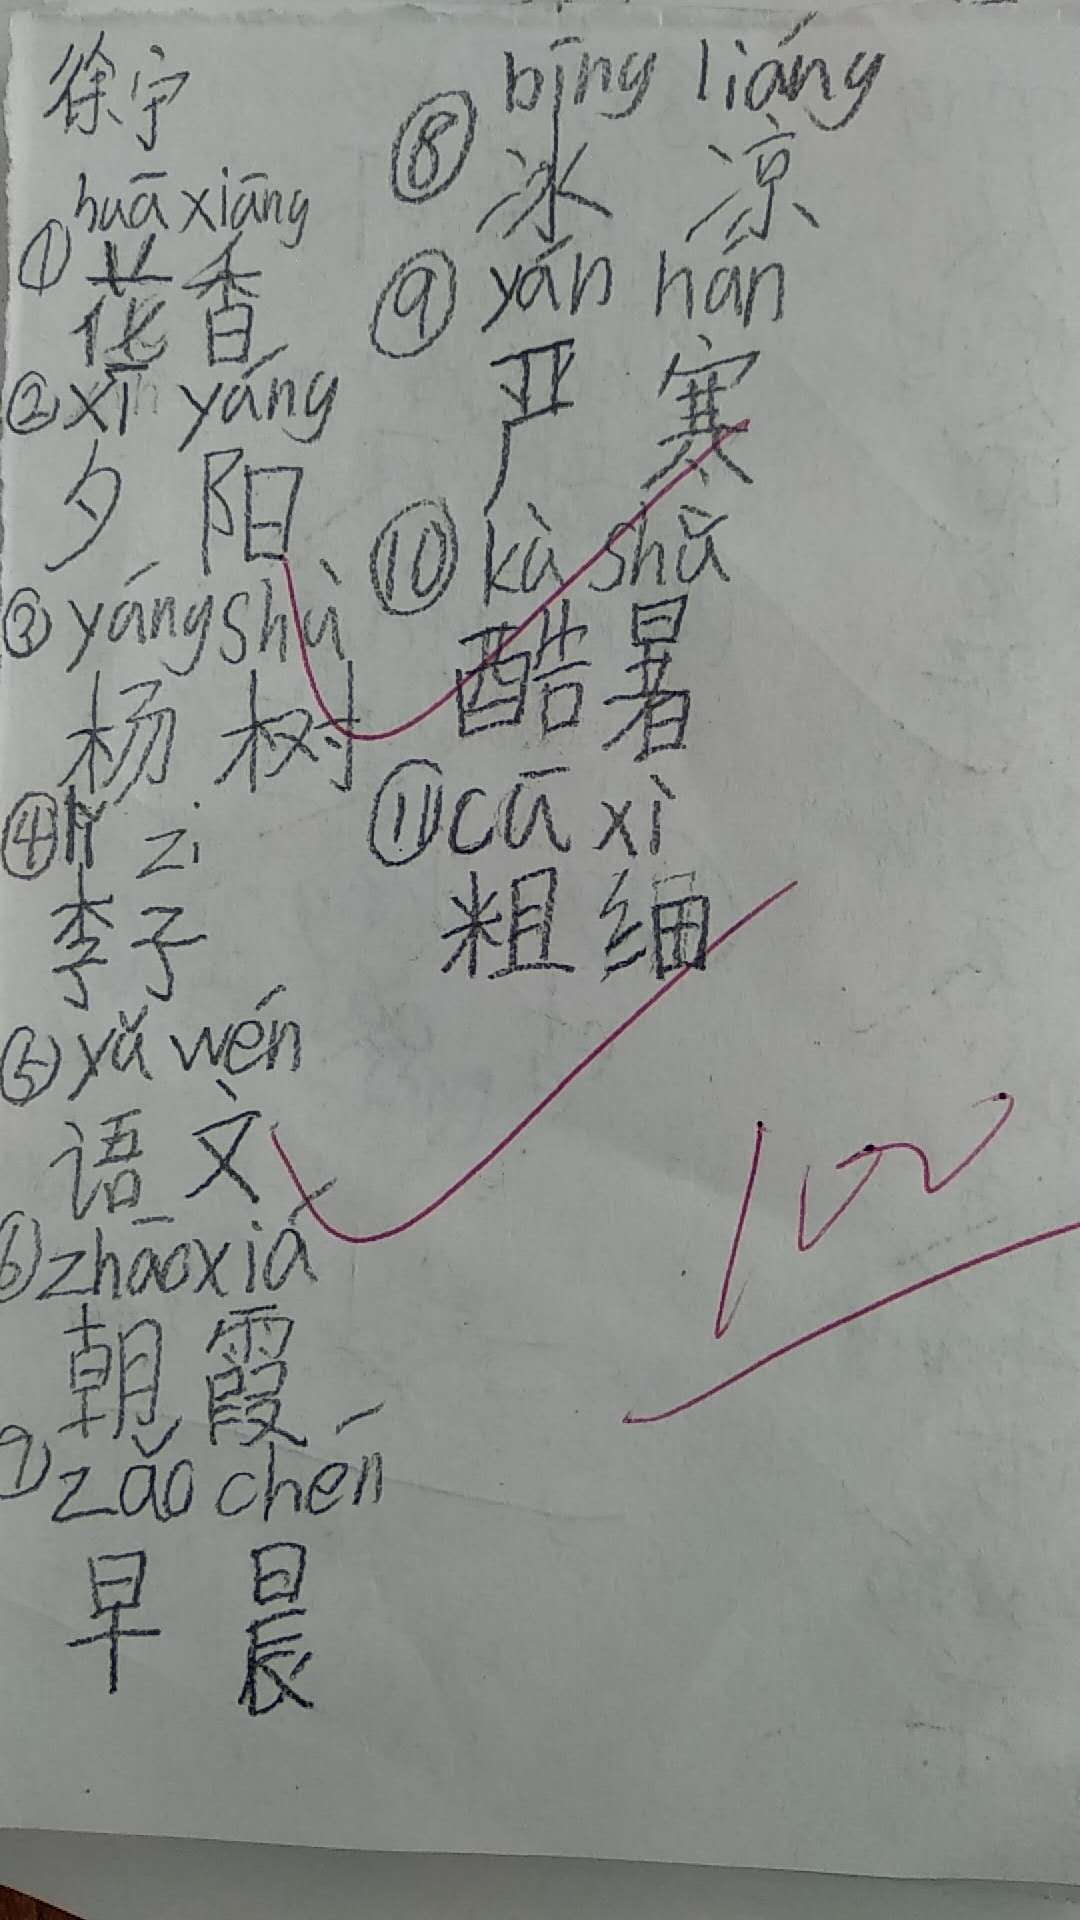 徐宁
① huā xiāng
花香
② xī yáng
夕阳
③ yáng shù
杨树
④ lǐ zi
李子
⑤ yǔ wén
语文
⑥ zhāo xiá
朝霞
⑦ zǎo chén
早晨
⑧ bīng liáng
冰凉
⑨ yán hán
严寒
⑩ kù shǔ
酷暑
⑪ cū xì
粗细
100